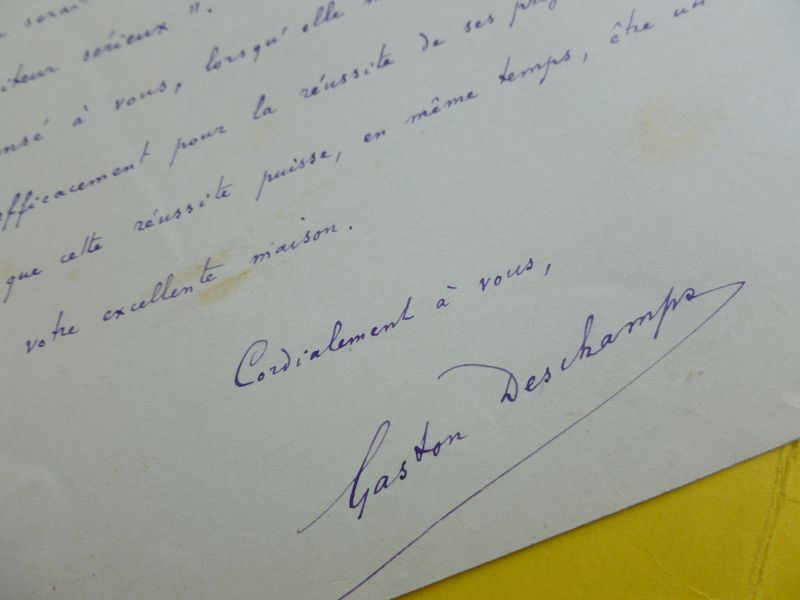 serai
iteur sérieux ".
ensé à vous, lorsqu'elle m
efficacement pour la réussite de ses proj
que cette réussite puisse, en même temps, être un
votre excellente maison.
Cordialement à vous,
Gaston Deschamps